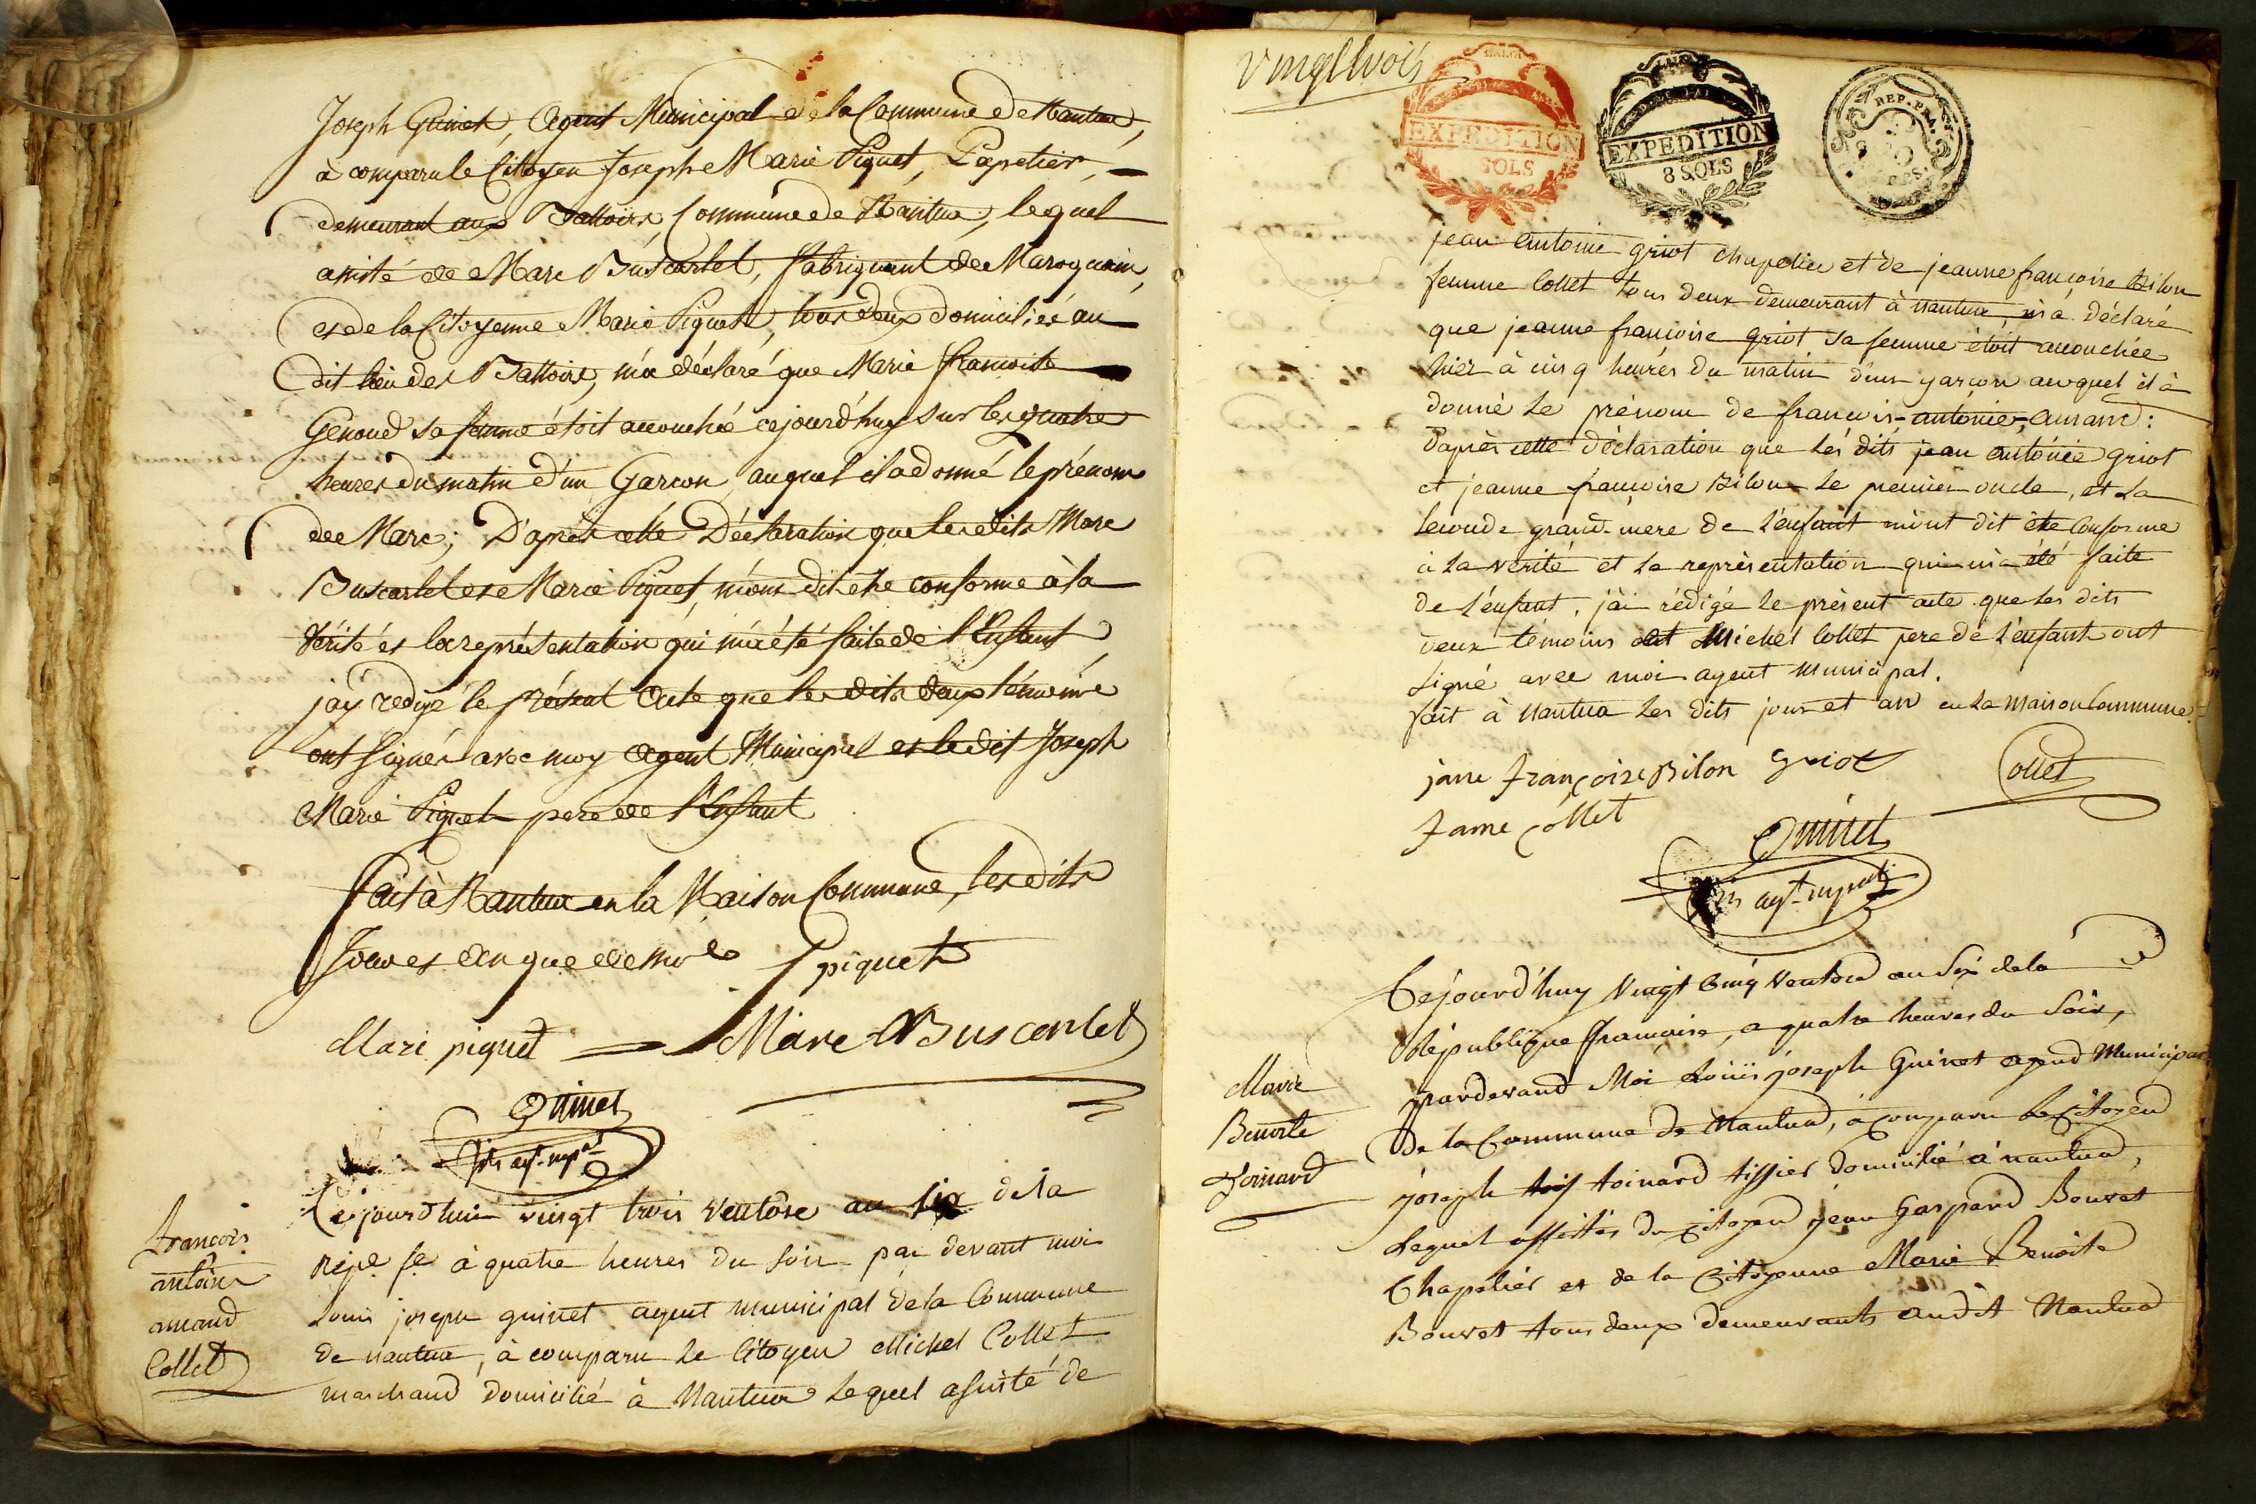 Joseph Guinet, Agent Municipal de la Commune de Nantua,
à comparu le Citoyen Joseph Marie Piquet, Papetier,
demeurant aux Battoirs Commune de Nantua, lequel
assisté de Marc Buscarlet, fabriquant de Maroquin,
et de la Citoyenne Marie Piquet, tous deux domiciliés au
dit lieu des Battoirs, m'a déclaré que Marie francoise
Genoud sa femme étoit accouchée cejourd'huy sur les quatre
heures du matin d'un Garcon, auquel il a donné le prénom
de Marc; D'après cette Déclaration que les dits Marc
Buscarlet et Marie Piquet, m'ont dit etre conforme à la
Vérité et la représentation qui m'a été faite de l'Enfant
j'ay redigé le présent Acte que les dits deux témoins
ont signés avec moy Agent Municipal et le dit Joseph
Marie Piquet pere de l'Enfant
Fait à Nantua en la Maison Commune, les dits
Jour et an que dessus J piquet
Mari piquet Marc Buscarlet
Guinet
agt. mpal
francois
antoine
amand
Collet
Cejourdhui vingt trois ventôse an six de la
Repe. fe. à quatre heures du soir par devant moi
Louis joseph guinet agent municipal de la Commune
de nantua, à comparu le Citoyen Michel Collet
marchand domicilié à Nantua lequel assisté de
vingt trois
LA LOI
EXPEDITION
SOLS
LA LOI
EXPEDITION
8 SOLS
REP. FRA.
jean antoine griot chapelier et de jeanne francoise Bilon
femme Collet tous deux demeurant à nantua, m'a déclaré
que jeanne francoise griot sa femme étoit accouchée
hier à cinq heures du matin d'un garcon auquel il à
donné le prénom de francois-antoine-amand:
d'après cette déclaration que les dits jean antoine griot
et jeanne francoise Bilon le premier oncle, et la
seconde grand-mere de l'enfant m'ont dit etre conforme
à la vérité et la représentation qui m'a été faite
de l'enfant, j'ai rédigé le présent acte que les dits
deux témoins et Michel Collet pere de l'enfant ont
signé avec moi agent municipal.
fait à nantua les dits jour et an en la maison Commune.
jane françoise Bilon Griot Collet
fame Collet
Guinet
agt. mpal
Marie
Benoite
Toinard
Cejourd'huy vingt cinq ventose an Six de la
République francaise, a quatre heures du Soir,
pardevand Moi Louis joseph Guinet agend Municipal
de la Commune de Nantua, a comparu le Citoyend
joseph toinard tissier domicilié à nantua,
Lequel assistés du citoyend jean Gaspard Bouvet
Chapelier et de la Citoyenne Marie Benoite
Bouvet tous deux demeurants audit Nantua